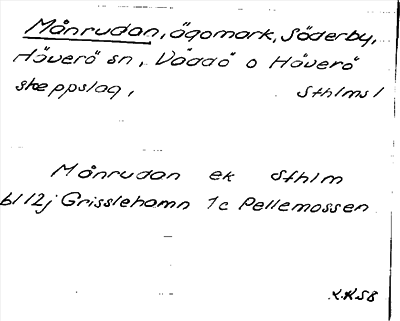 Månrudan, ägomark, Söderby,
Häverö sn, Väddö o Häverö
skeppslag, Sthlms l
Månrudan ek Sthlm
bl 12j Grisslehamn 1c Pellemossen
K.K 58